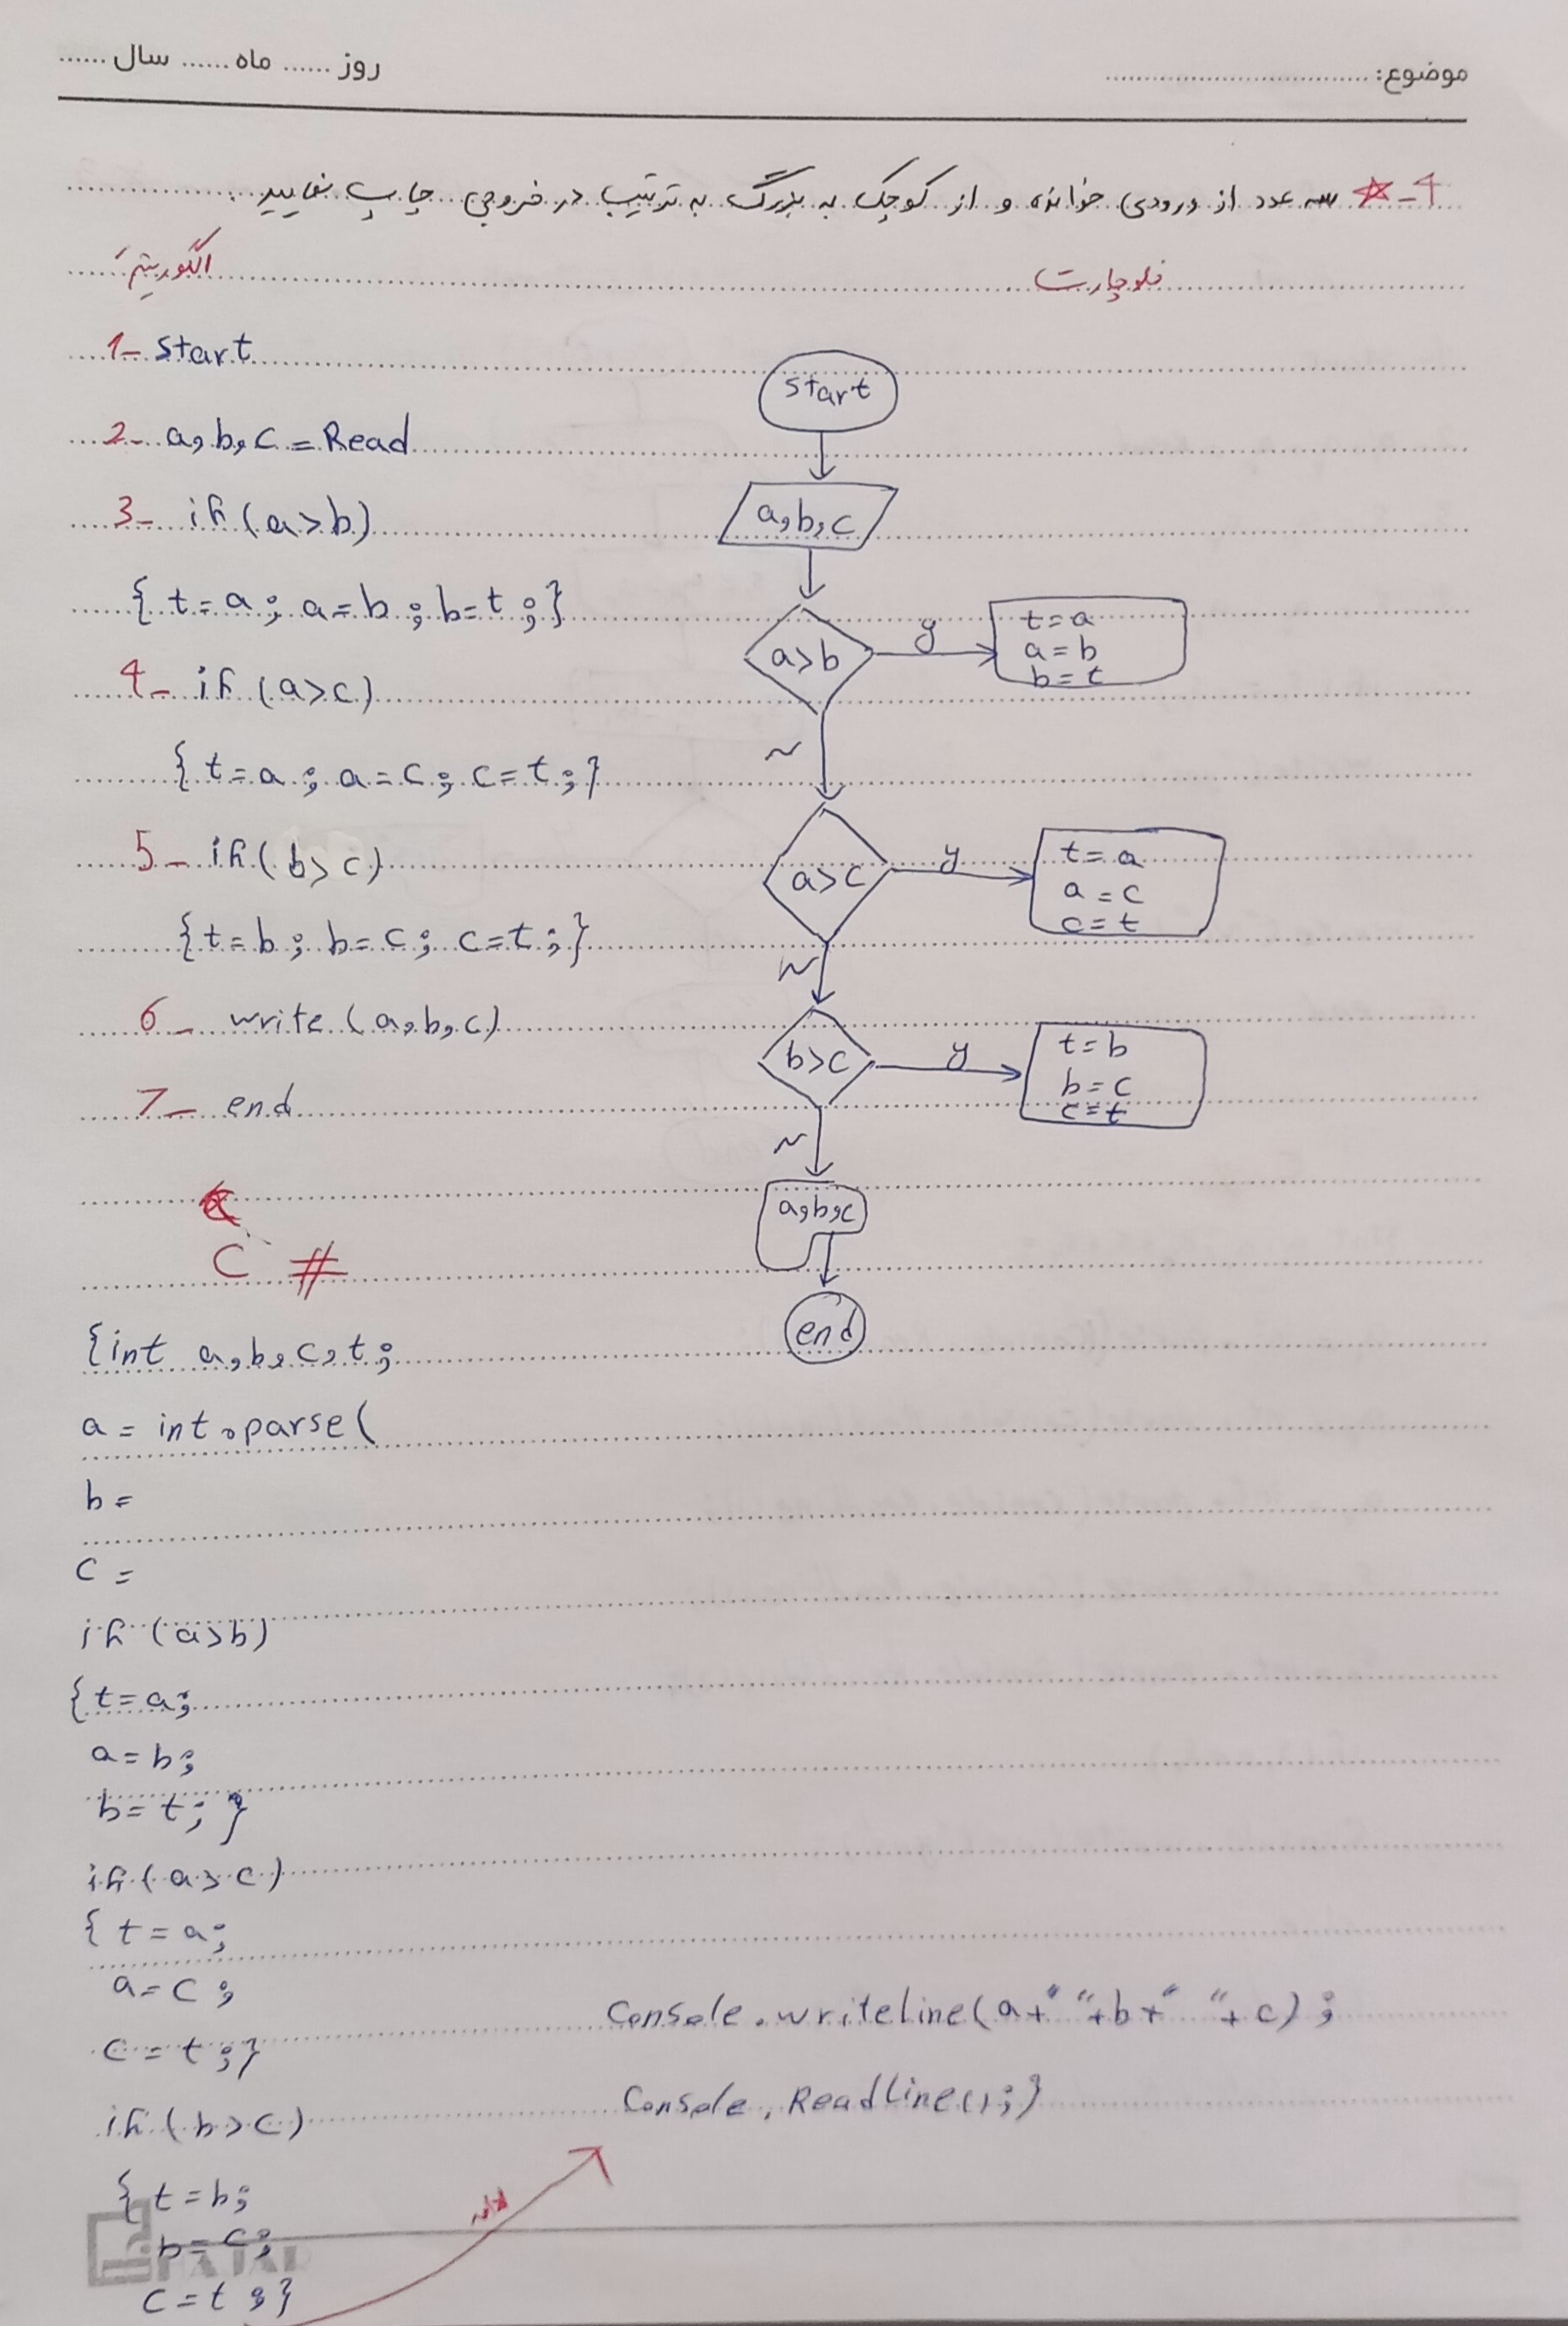 موضوع: ................................ روز ...... ماه ...... سال ......
4- سه عدد از ورودی خوانده و از کوچک به بزرگ به ترتیب در خروجی چاپ نمایید.
فلوچارت
الگوریتم
1- start
2- a,b,c = Read
3- if (a>b)
{ t=a; a=b; b=t;}
4- if (a>c)
{ t=a; a=c; c=t;}
5- if (b>c)
{t=b; b=c; c=t;}
6- write (a,b,c)
7- end
start
a,b,c
a>b
y
t=a
a=b
b=t
N
a>c
y
t=a
a=c
c=t
N
b>c
y
t=b
b=c
c=t
N
a,b,c
end
C #
{int a,b,c,t;
a = int.parse(
b =
c =
if (a>b)
{t=a;
a=b;
b=t; }
if (a>c)
{ t=a;
a=c;
c=t;}
if (b>c)
{ t=b;
b=c;
c=t;}
Console.writeLine(a+" "+b+" "+c);
Console.ReadLine();}